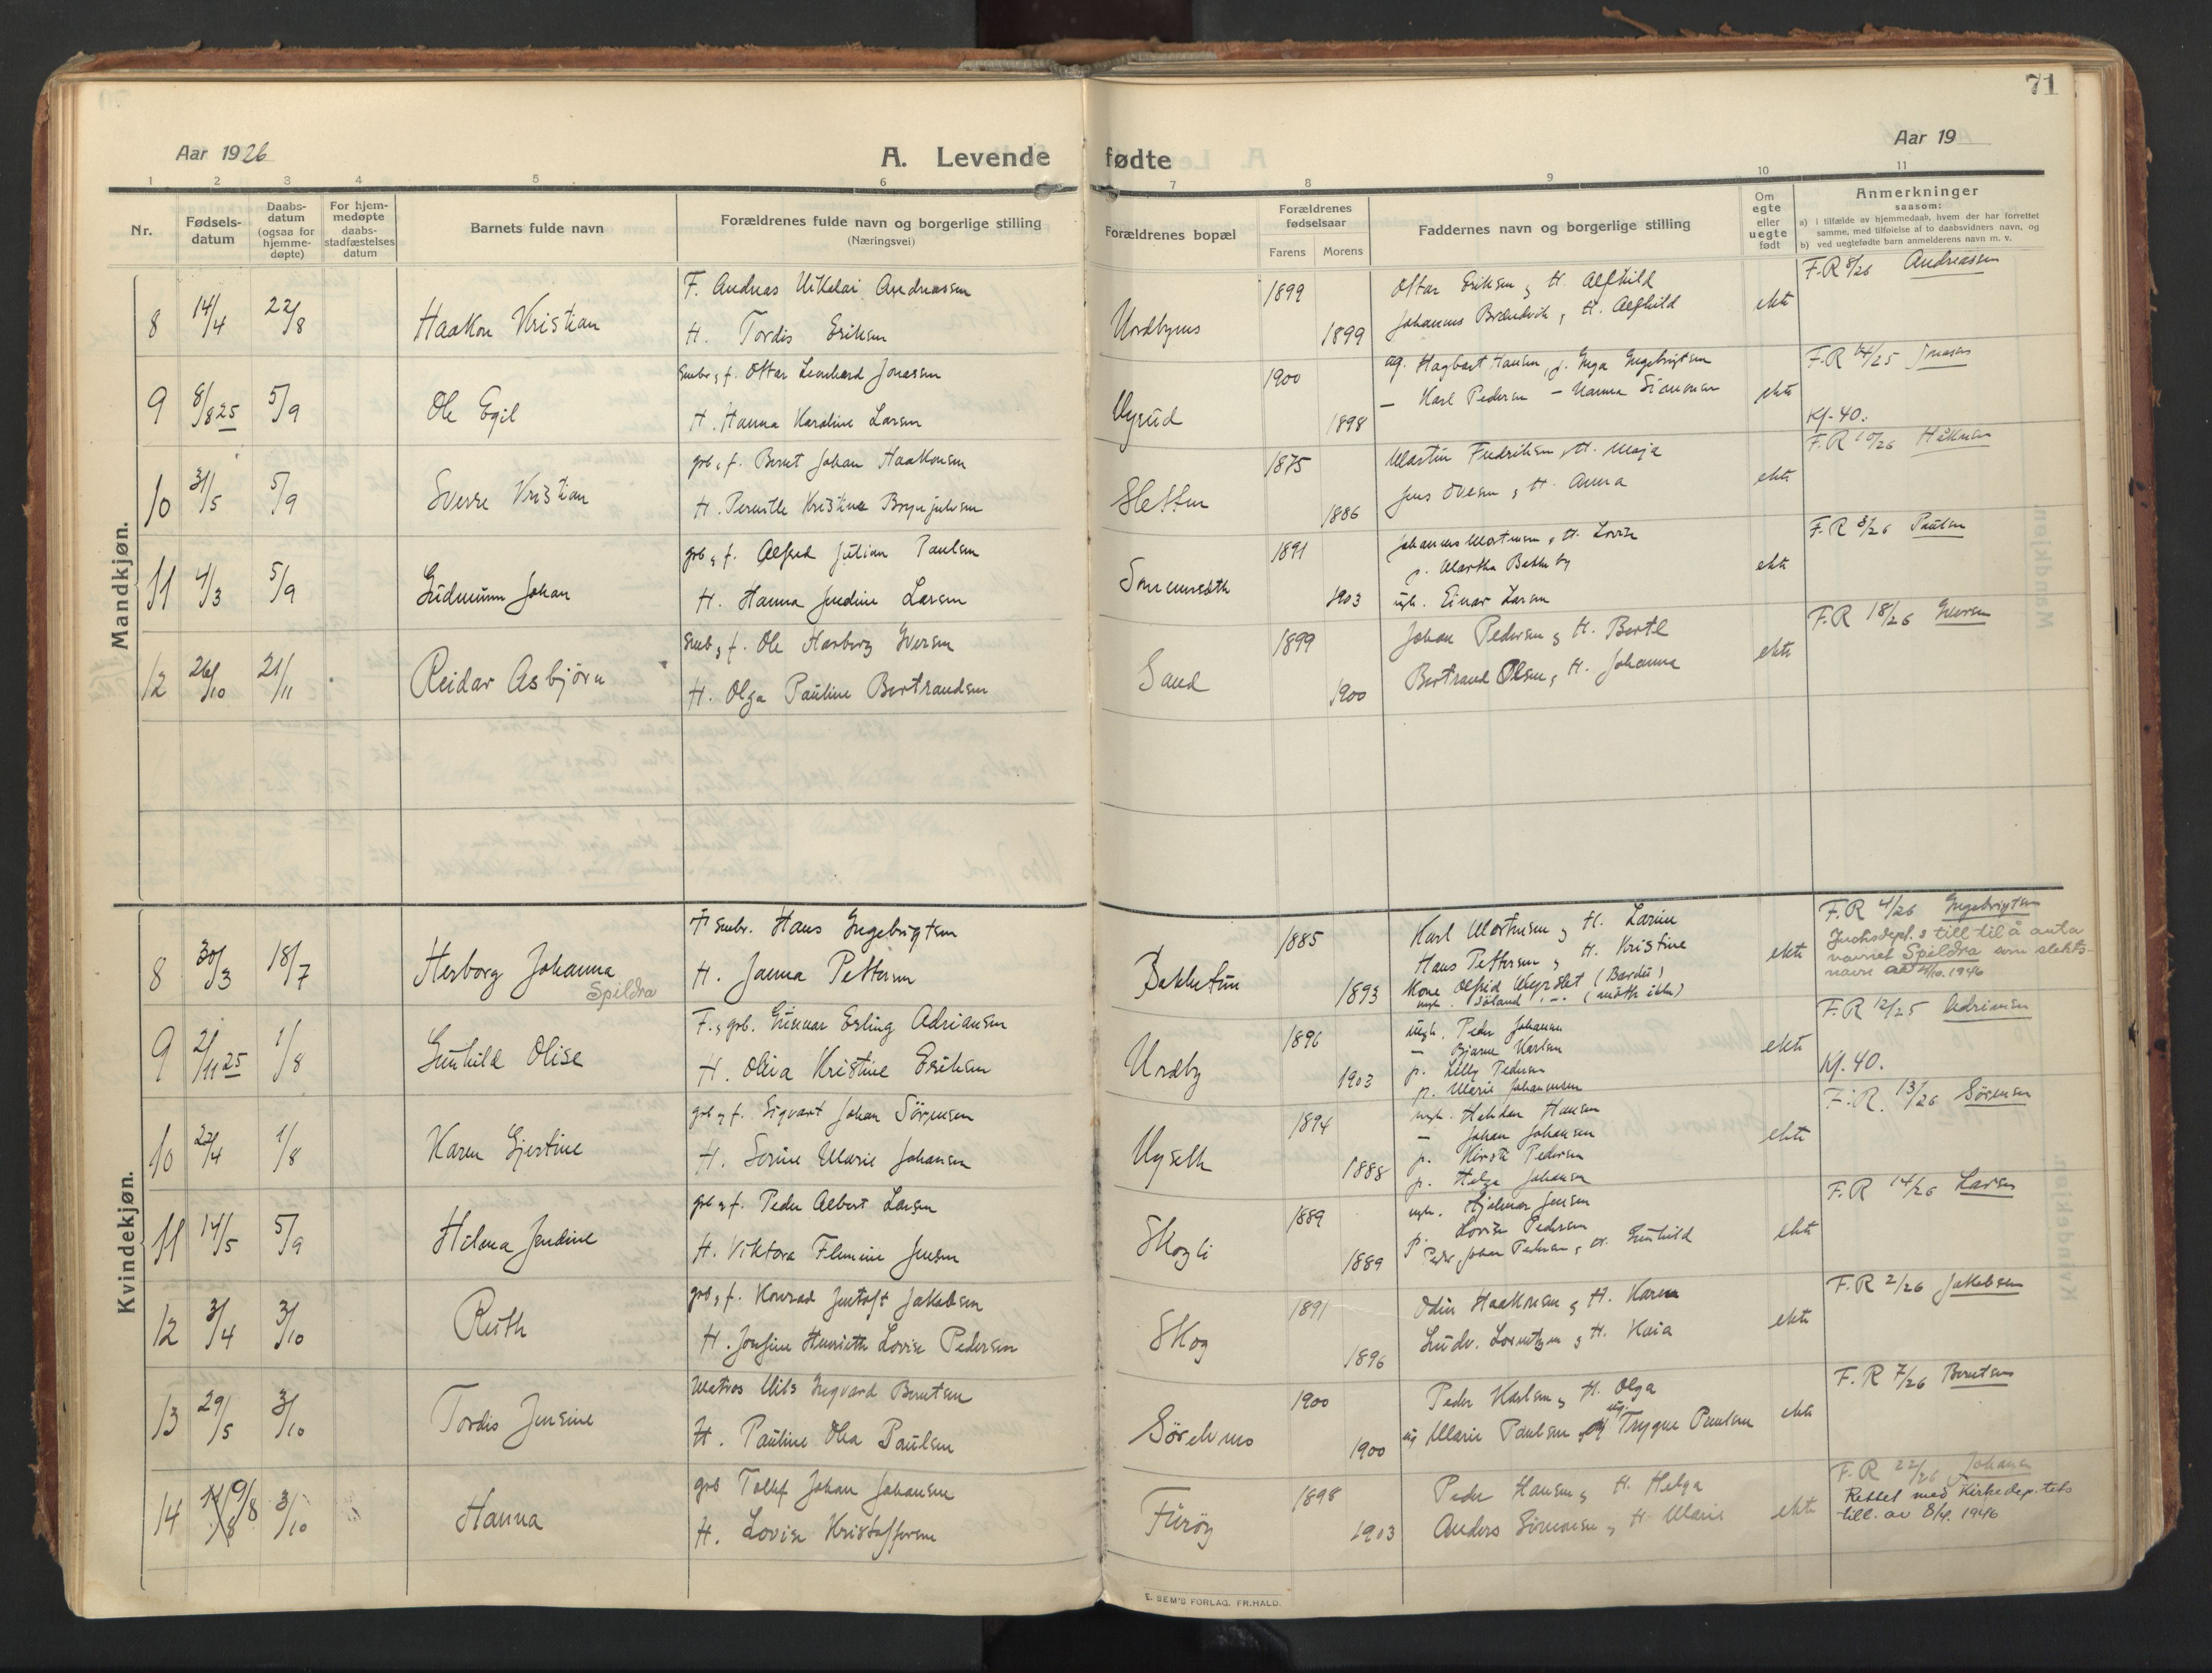 71
Aar 1926
A. Levende fødte
Aar 19
1 2 3 4 5 6 7 8 9 10 11
Nr.
Fødsels-
datum
Daabs-
datum
(ogsaa for
hjemme-
døpte)
For hjem-
medøpte
daabs-
stadfæstelses
datum
Barnets fulde navn
Forældrenes fulde navn og borgerlige stilling
(Næringsvei)
Forældrenes bopæl
Forældrenes
fødselsaar
Farens Morens
Faddernes navn og borgerlige stilling
Om
egte
eller
uegte
født
Anmerkninger
saasom:
a) i tilfælde av hjemmedaab, hvem der har forrettet
samme, med tilføielse af to daabsvidners navn, og
b) ved uegtefødte barn anmelderens navn m. v.
Mandkjøn.
8 14/4 22/8 Haakon Kristian
F. Andreas Nikolai Andreassen
H. Tordis Eriksen
1899
1899
Ottar Eriksen, H. Alfhild
Johannes Brændvik, H. Alfhild
ekte
F.R 8/26 Andreassen
9 8/8 25 5/9 Ole Egil
Smbr, f. Ottar Leonhard Jonassen
H. Hanna Karoline Larsen
Nysud
1900
1898
ug. Hagbart Hansen, p. Inga Ingebrigtsen
— Karl Pedersen — Hanna Simonsen
ekte
F.R 14/25 Jonasen
Kf. 40.
10 31/5 5/9 Sverre Kristian
grb, f. Bernt Johan Haakonsen
H. Pernille Kristine Brynjulvsen
Sletten
1875
1886
Martin Fredriksen, H. Maja
Jens Olsen, H. Anna
ekte
F.R 10/26 Håkonsen
11 4/3 5/9 Gudmunn Johan
grb, f. Alfred Julian Paulsen
H. Hanna Jendine Larsen
1891
1903
Johannes Mortensen, H. Lovise
p. Martha Bakkeby
ugk. Einar Larsen
ekte
F.R 3/26 Paulsen
12 26/10 21/11 Reidar Asbjørn
Smb, f. Ole Harberg Iversen
H. Olga Pauline Bertrandsen
Sand
1899
1900
Johan Pedersen, H. Bertel
Bertrand Olsen, H. Johanna
ekte
F.R 18/26 Iversen
Kvindekjøn.
8 30/3 18/7 Herborg Johanna
Spildra
F. smbr. Hans Ingebrigtsen
H. Janna Pettersen
Bakketun
1885
1893
Karl Mortensen, H. Larine
Hans Pettersen, H. Kristine
Kone Alfrid Myrslet (Bardu)
ekte
F.R 4/26 Ingebrigtsen
Justisdept.s till til å anta
navnet Spildra som slekts-
navn av 4/10. 1946
9 2/11 25 1/8 Gunhild Olise
F., grb. Gunnar Erling Adriansen
H. Olivia Kristine Eriksen
Urdby
1896
1903
ugk. Peder Johansen
— Bjarne Karlsen
p. Lilly Pedersen
p. Marie Johannesen
ekte
F.R 12/25 Adriansen
Kf. 40.
10 22/4 1/8 Karen Gjertine
grb, f. Sigvart Johan Sörensen
H. Serine Marie Johansen
Nyseth
1894
1888
ugk. Halvdan Hansen
— Johan Johansen
p. Kirsti Pedersen
p. Helga Johansen
ekte
F.R. 13/26 Sørensen
11 14/5 5/9 Hilma Jendine
grb, f. Peder Albert Larsen
H. Viktora Flemine Jensen
Skogli
1889
1889
ugk. Hjalmar Jensen
p. Lovise Pedersen
Peder Johan Pedersen, H. Gunhild
ekte
F.R 14/26 Larsen
12 3/4 3/10 Ruth
grb, f. Konrad Jentoft Jakobsen
H. Josefine Henriette Lovise Pedersen
Skog
1891
1896
Odin Haakonsen, H. Karen
Ludv. Lorentzen, H. Kaia
ekte
F.R 2/26 Jakobsen
13 29/5 3/10 Tordis Jensine
Matros Nils Ingvard Berntsen
H. Pauline Olea Paulsen
Sörelvmo
1900
1900
Peder Karlsen, H. Olga
ug Marie Paulsen, ug. Trygve Paulsen
ekte
F.R 7/26 Berntsen
14 9/8 3/10 Hanna
grb Tollef Johan Johansen
H. Lovise Kristoffersen
Furöy
1898
1903
Peder Hansen, H. Helga
Anders Simonsen, H. Marie
ekte
F.R 22/26 Johansen
Rettet med Kirkedep.tets
till. av 8/4. 1946
E. SEM'S FORLAG. FR.HALD.